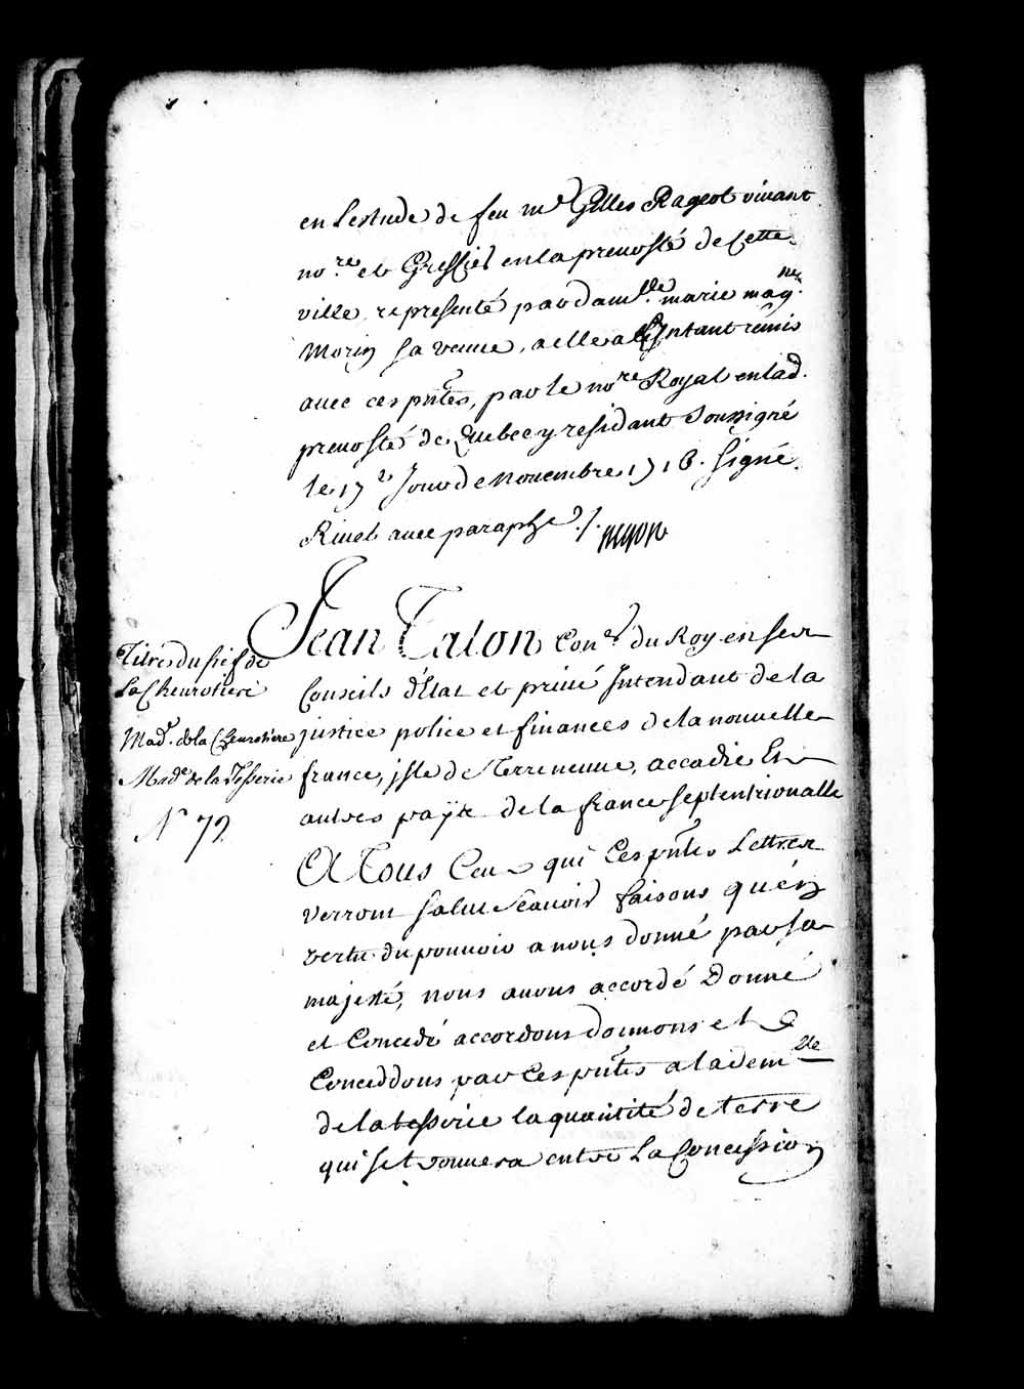 en Lestude de feu me Gilles Rageot vivant
nore et Greffier en la prevosté de Cette
ville representé par damlle marie magne
Morin sa veuve, a elle a Linstant remis
avec ces pntes, par le nore Royal en lad.
prevosté de Quebec y residant Soussigné
le 17e Jour de Novembre 1716. signé
Rivet avec paraphe ./.
Titre du fief de
La Chevrotiere
Made. de la Chevrotiere
Made de la Tesserie
No 79
Jean Talon Coner du Roy en ses
Conseils d'Etat et privé Intendant de la
justice police et finances de la nouvelle
france, isle de Terreneuve, accadie Et
autres païs de la france septentrionalle
A Tous Ceux qui Ces pntes Lettres
verront Salut Scavoir faisons quen
vertu du pouvoir a nous donné par sa
majesté, nous avons accordé Donné
et Concedé accordons donnons et
Conceddons par Ces pntes a la demlle
de la tesserie la quantité de terre
qui se trouvera entre La Concession